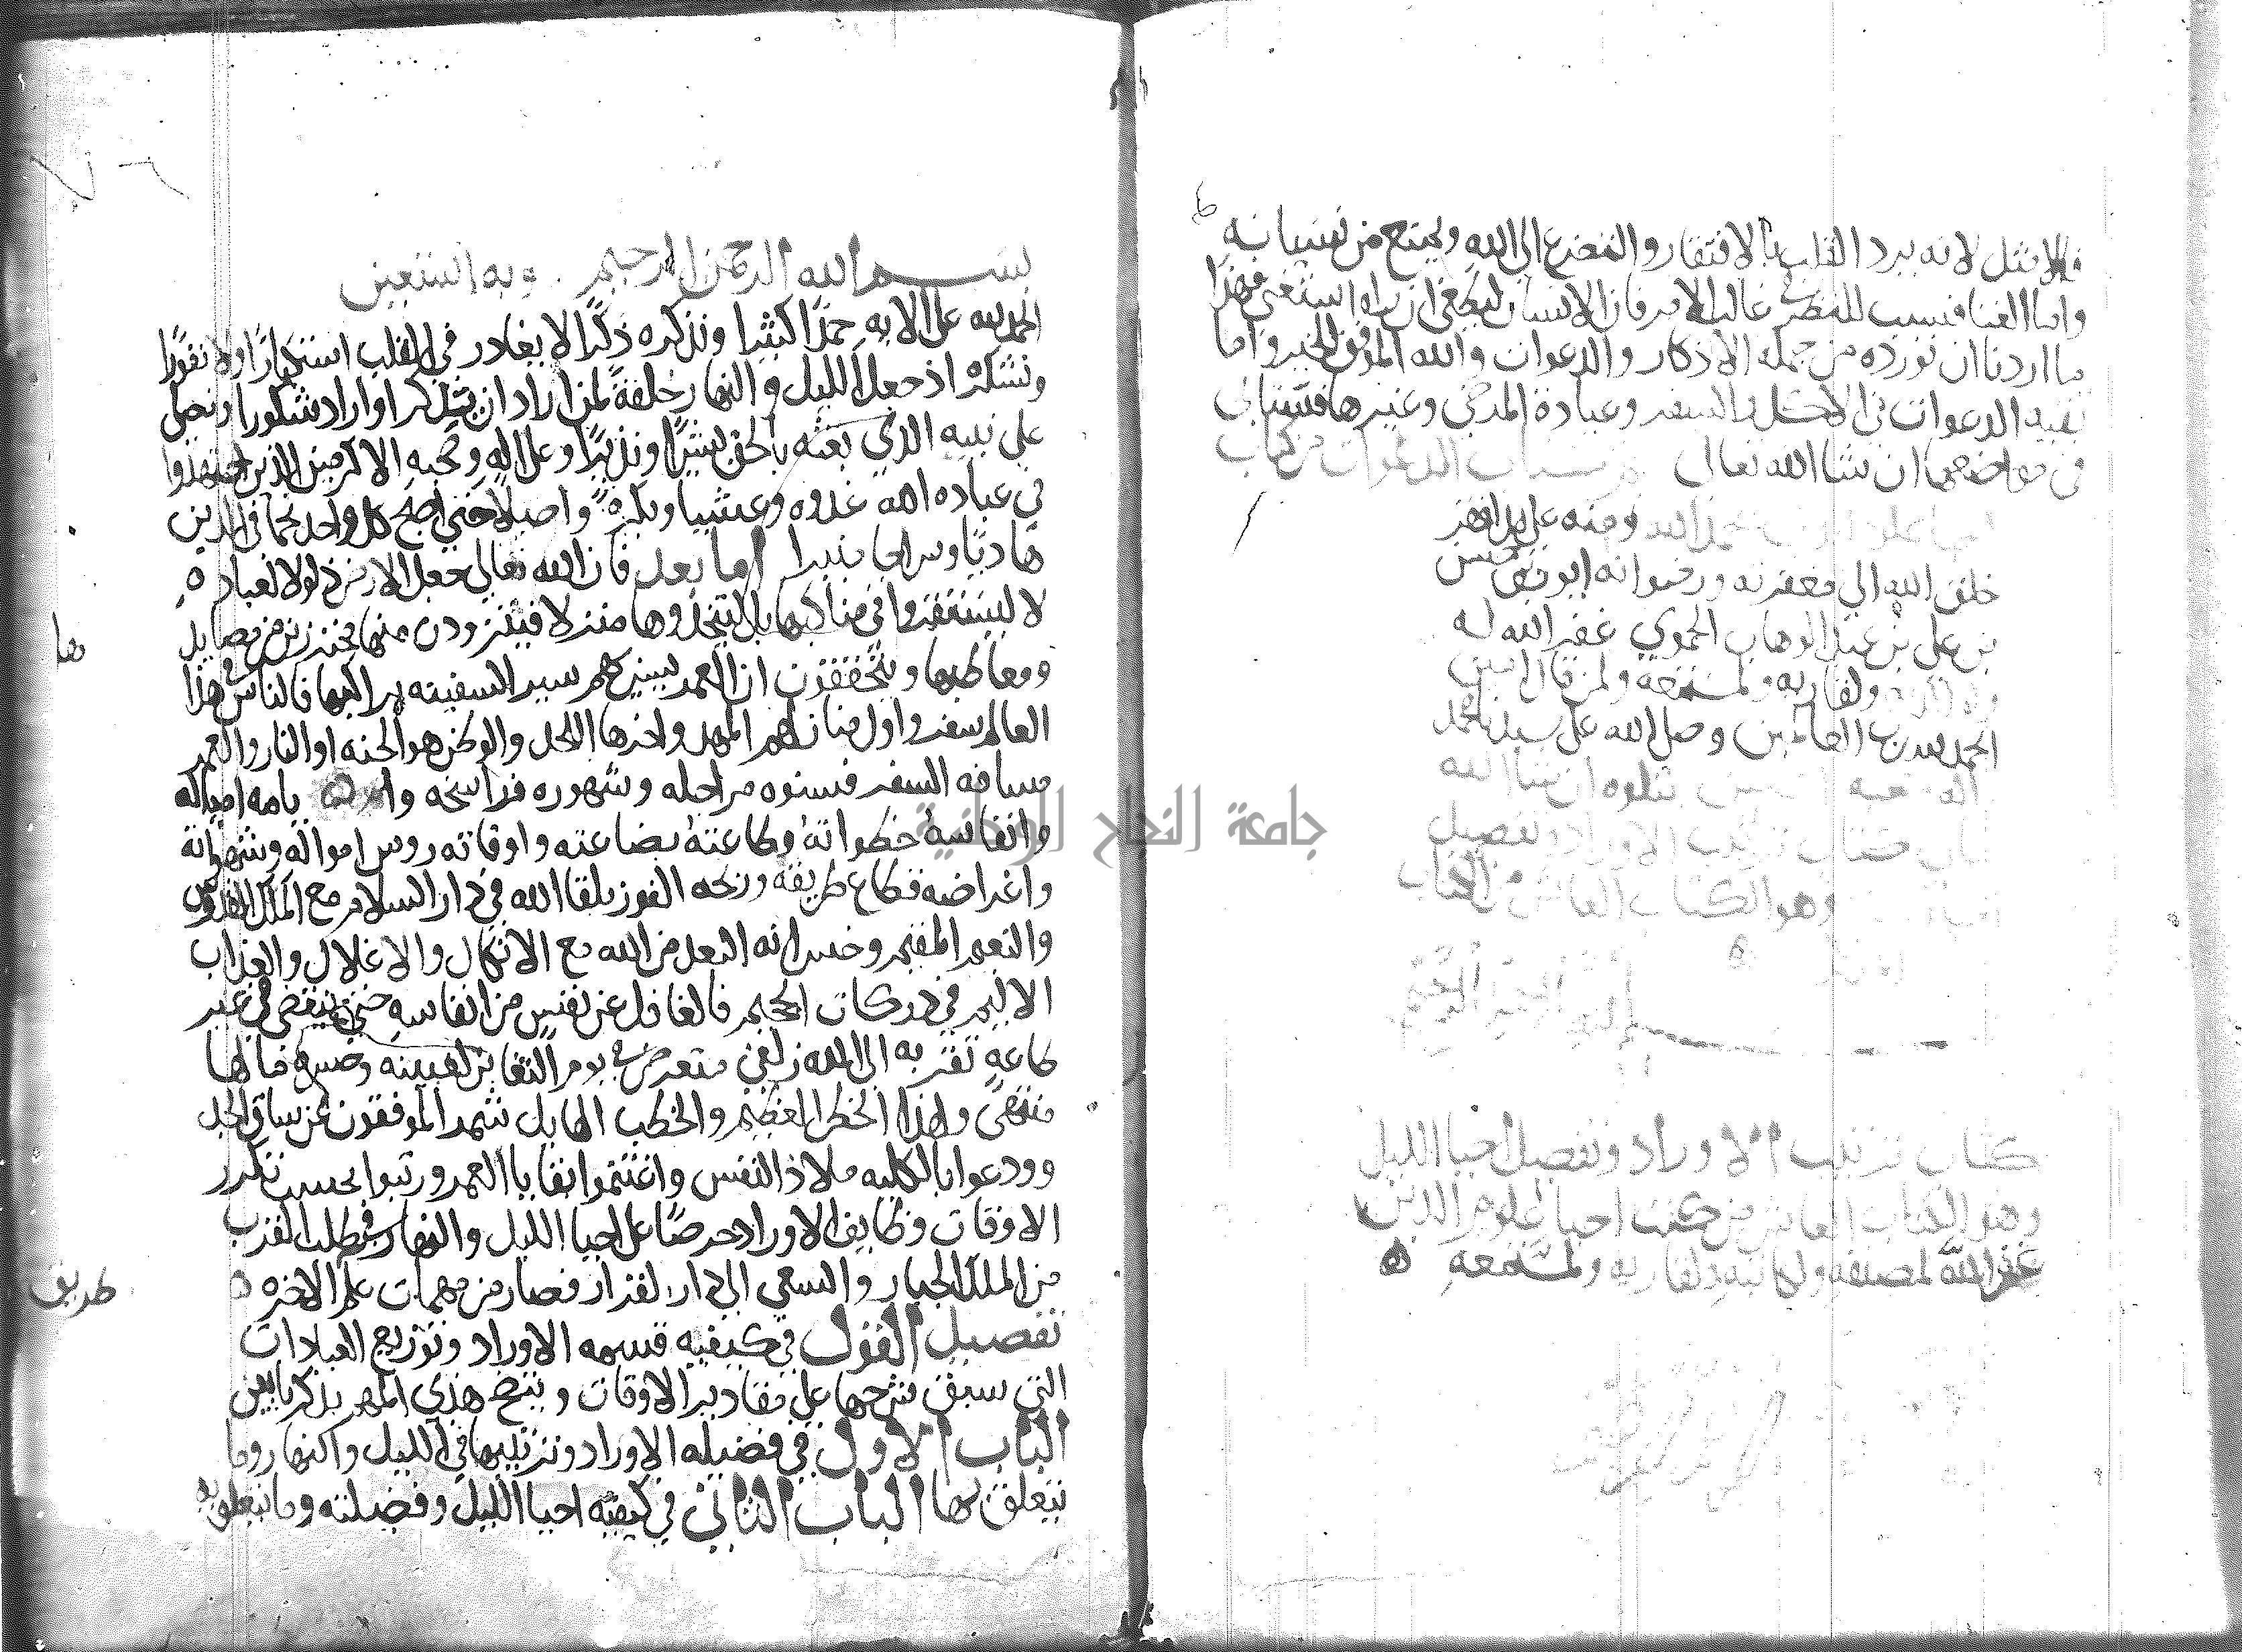 فالامثل لانه يرد القلب بالافتقار والتضرع الى الله ويمنع من نسيانه
واما الغنا فسبب للبطر في غالب الامر فان الانسان ليطغى ان راه استغنى فهذا
ما اردنا ان نورده من جملة الاذكار والدعوات والله الموفق للخير واما
بقية الدعوات في الاكل والسفر وعيادة المرضى وغيرها فستاتي
في مواضعها ان شا الله تعالى كتاب الدعوات من كتاب
حمد الله ومنه على يد افقر
خلق الله الى مغفرته ورضوانه ابو بكر
بن علي بن عبد الوهاب الحموي غفر الله له
ولقاريه ولمستمعه ولمن قال امين
الحمد لله رب العالمين وصلى الله على سيدنا محمد
يتلوه ان شا الله
كتاب ترتيب الاوراد وتفصيل
وهو الكتاب العاشر من الكتاب
كتاب ترتيب الاوراد وتفصيل احيا الليل
وهو الكتاب العاشر من كتب احيا علوم الدين
غفر الله لمصنفه ولكاتبه ولقاريه ولمستمعه ه
بسم الله الرحمن الرحيم وبه استعين
الحمد لله على الايه حمدا كثيرا ونذكره ذكرا لا يغادر في القلب استكبارا ولا نفورا
ونشكره اذ جعل الليل والنهار خلفة لمن اراد ان يذكر او اراد شكورا ونصلي
على نبيه الذي بعثه بالحق بشيرا ونذيرا وعلى اله وصحبه الاكرمين الذين اجتهدوا
في عباده الله غدوه وعشيا وبكرة واصيلا حتى اصبح كل واحد نجما في الدين
هاديا وسراجا منيرا اما بعد فان الله تعالى جعل الارض ذلولا لعباده
لا ليستقروا في مناكبها بل ليتخذوها منزلا فيتزودون منها محترزين من مصايدها
ومعاطبها ويتحققون ان العمر يسير بهم سير السفينه براكبها فالناس في هذا
العالم سفر واول منازلهم المهد واخرها اللحد والوطن هو الجنه او النار والعمر
مسافه السفر فسنوه مراحله وشهوره فراسخه وايامه امياله
وانفاسه خطواته وطاعته بضاعته واوقاته روس امواله وشهواته
واغراضه قطاع طريقه وربحه الفوز بلقا الله في دار السلام مع الملك الكبير
والنعيم المقيم وخسرانه البعد من الله مع الانكال والاغلال والعذاب
الاليم في دركات الجحيم فالغافل عن نفس من انفاسه حتى ينقضي في غير
طاعة تقربه الى الله زلفى متعرض في يوم التغابن لغبينه وحسرة ما لها
منتهى ولهذا الخطر العظيم والخطب الهايل شمر الموفقون عن ساق الجد
وودعوا بالكليه ملاذ النفس واغتنموا بقايا العمر ورتبوا بحسب تكرر
الاوقات وظايف الاوراد حرصا على احيا الليل والنهار في طلب القرب
من الملك الجبار والسعي الى دار القرار فصار من مهمات علم الاخره
طريق
تفصيل القول في كيفيه قسمه الاوراد وتوزيع العبادات
التي سبق شرحها على مقادير الاوقات ويتضح هذي المهم بذكر بابين
الباب الاول في فضيله الاوراد وترتيبها في الليل والنهار وما
يتعلق بها الباب الثاني في كيفيه احيا الليل وفضيلته وما يتعلق به
جامعة النجاح الوطنية